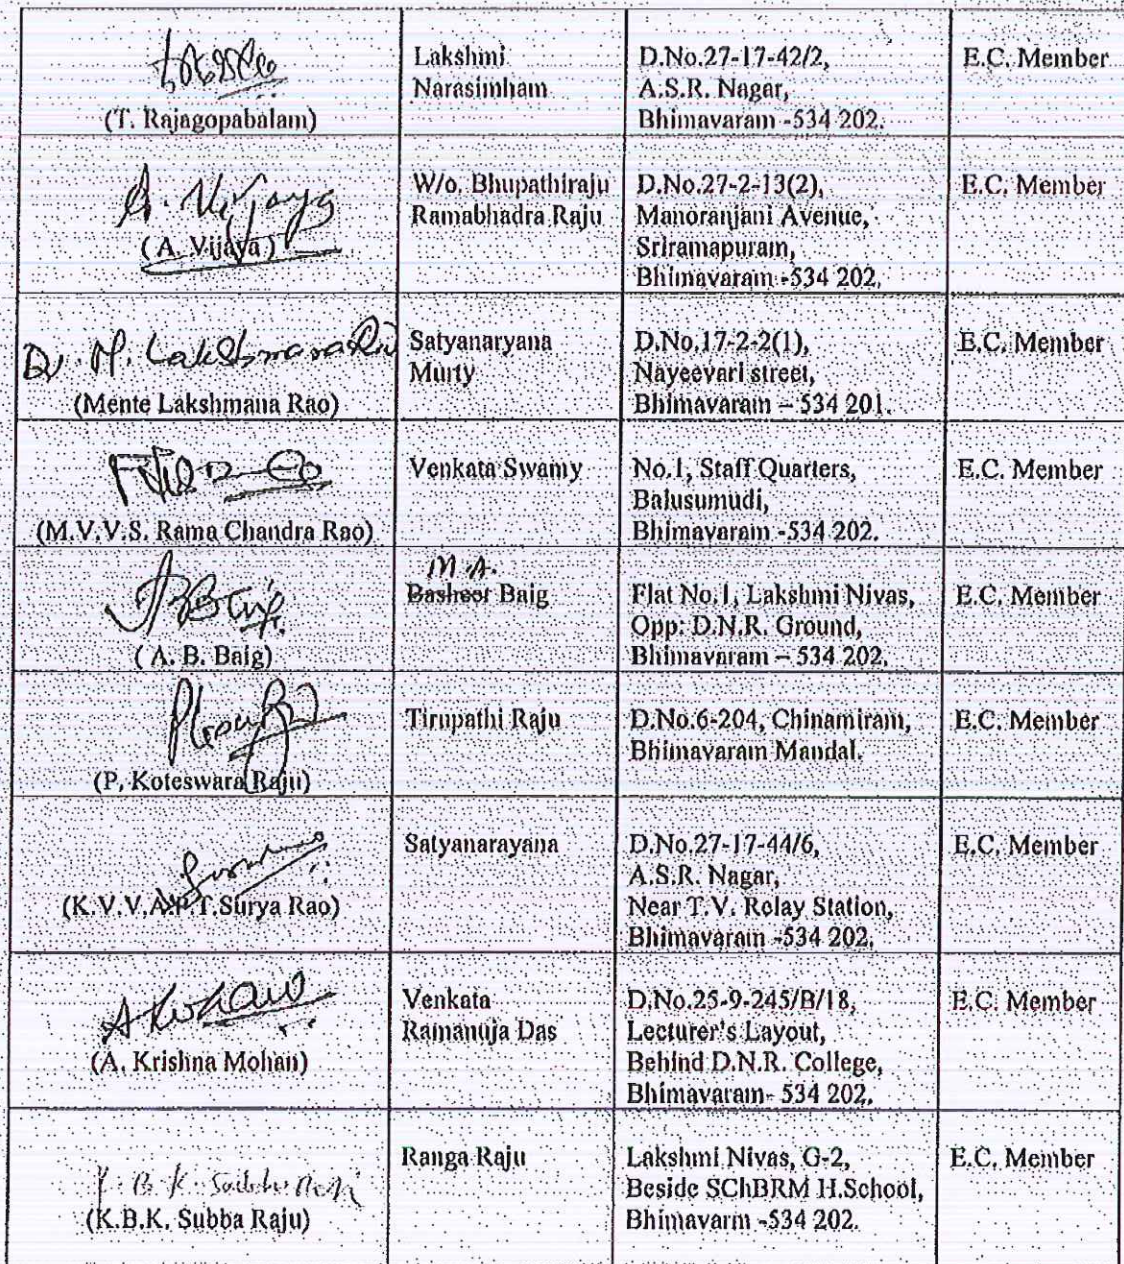 Lakshmi
Narasimham
D.No.27-17-42/2,
A.S.R. Nagar,
Bhimavaram -534 202.
E.C. Member
(T. Rajagopabalam)
A. Vijaya
(A. Vijaya)
W/o. Bhupathiraju
Ramabhadra Raju
D.No.27-2-13(2),
Manoranjani Avenue,
Sriramapuram,
Bhimavaram -534 202.
E.C. Member
Dr. M. Lakshmana Rao
(Mente Lakshmana Rao)
Satyanaryana
Murty
D.No.17-2-2(1),
Nayeevari street,
Bhimavaram – 534 201.
E.C. Member
(M.V.V.S. Rama Chandra Rao)
Venkata Swamy
No.1, Staff Quarters,
Balusumudi,
Bhimavaram -534 202.
E.C. Member
A B Baig
(A. B. Baig)
M.A.
Basheer Baig
Flat No.1, Lakshmi Nivas,
Opp: D.N.R. Ground,
Bhimavaram – 534 202.
E.C. Member
(P. Koteswara Raju)
Tirupathi Raju
D.No.6-204, Chinamiram,
Bhimavaram Mandal.
E.C. Member
(K.V.V.A.P.T.Surya Rao)
Satyanarayana
D.No.27-17-44/6,
A.S.R. Nagar,
Near T.V. Relay Station,
Bhimavaram -534 202.
E.C. Member
(A. Krishna Mohan)
Venkata
Ramanuja Das
D.No.25-9-245/B/18,
Lecturer's Layout,
Behind D.N.R. College,
Bhimavaram- 534 202.
E.C. Member
K. B. K. Subba Raju
(K.B.K. Subba Raju)
Ranga Raju
Lakshmi Nivas, G-2,
Beside SChBRM H.School,
Bhimavarm -534 202.
E.C. Member